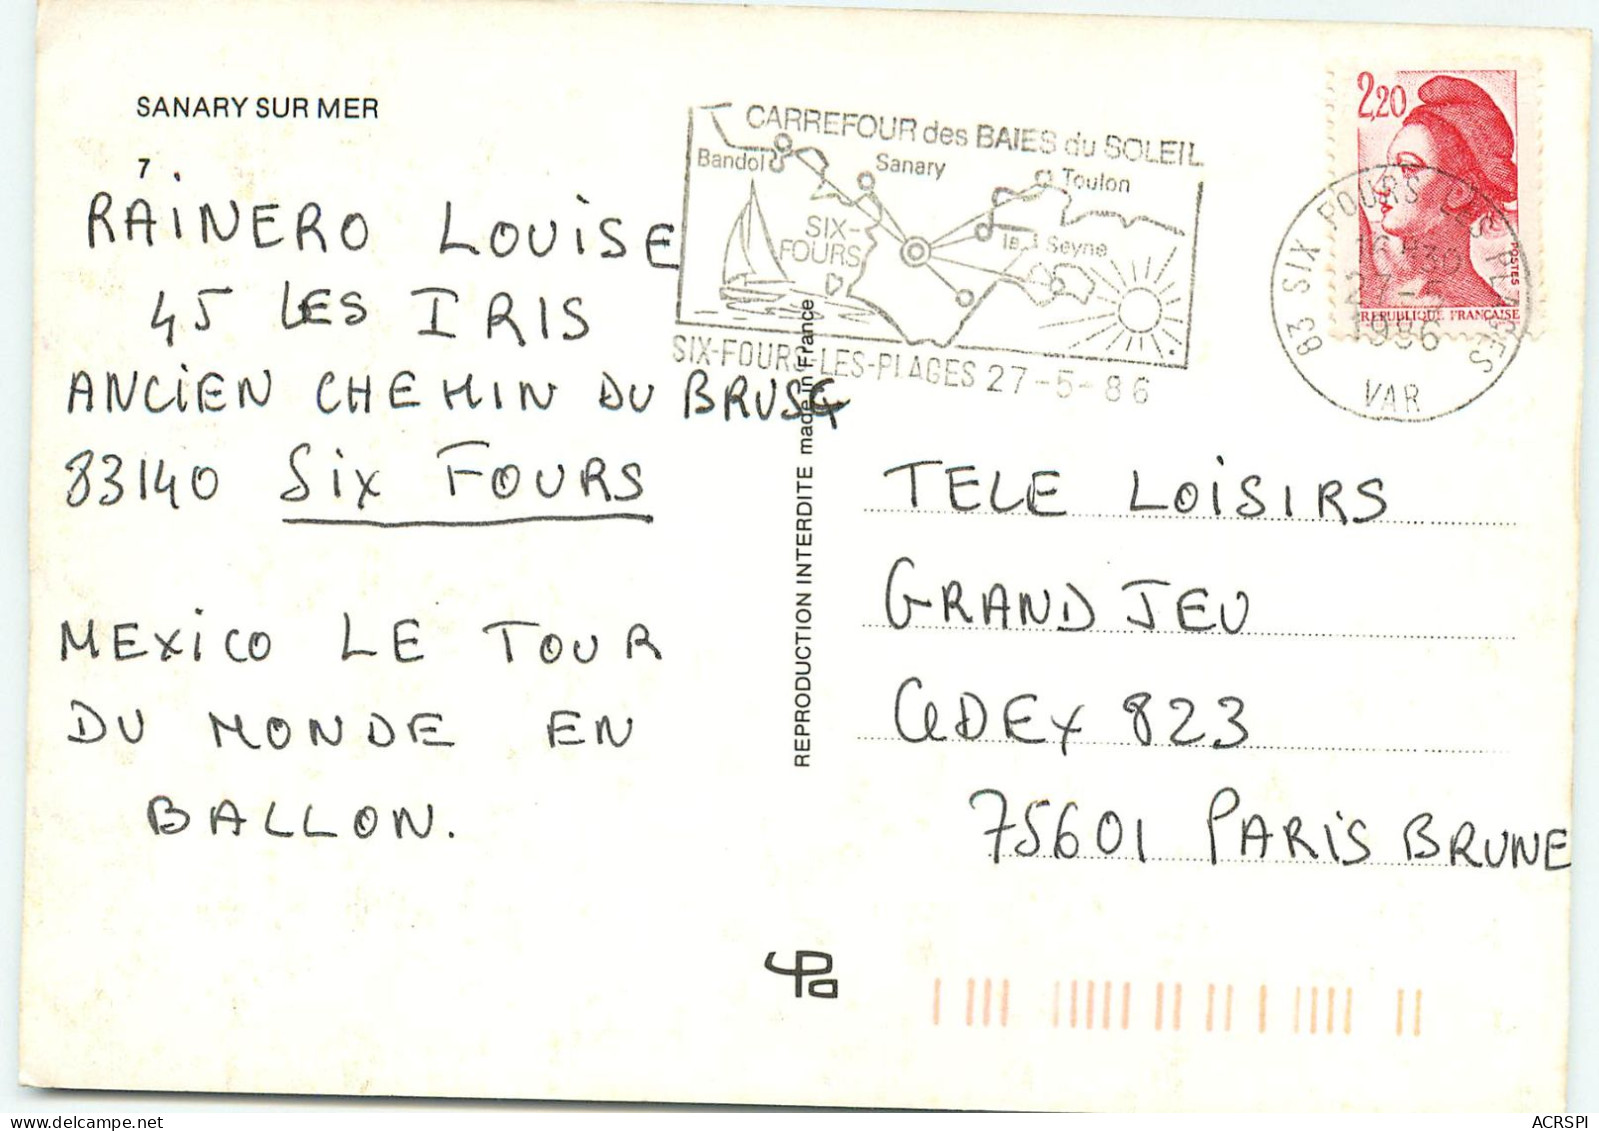 SANARY SUR MER
7
RAINERO LOUISE
45 LES IRIS
ANCIEN CHEMIN DU BRUSC
83140 SIX FOURS
MEXICO LE TOUR
DU MONDE EN
BALLON.
REPRODUCTION INTERDITE made in France
CARREFOUR des BAIES du SOLEIL
Bandol
Sanary
Toulon
SIX-
FOURS
la Seyne
SIX-FOURS-LES-PLAGES 27-5-86
2,20
POSTES
REPUBLIQUE FRANÇAISE
83 SIX FOURS LES PLAGES
16 H30
27-5
1986
VAR
TELE LOISIRS
GRAND JEU
CEDEX 823
75601 PARIS BRUNE
ACRSPI